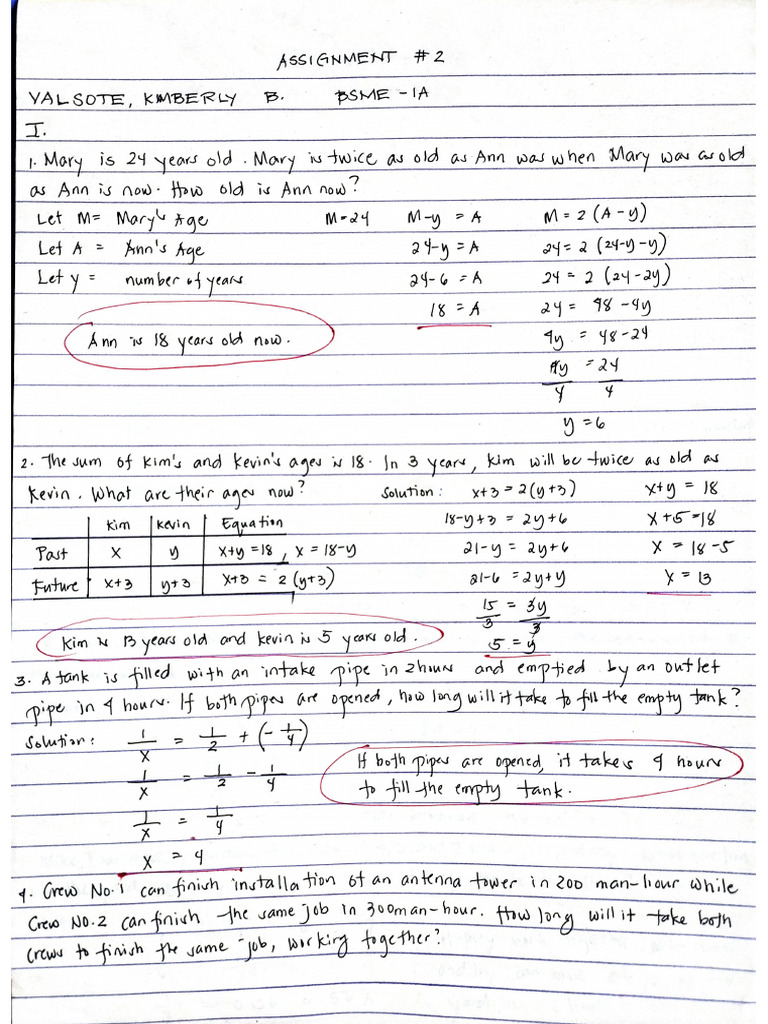 ASSIGNMENT #2
VALSOTE, KIMBERLY B. BSME-1A
I.
1. Mary is 24 years old. Mary is twice as old as Ann was when Mary was as old
as Ann is now. How old is Ann now?
Let M= Mary's Age M=24 M-y = A M = 2 (A-y)
Let A = Ann's Age 24-y = A 24 = 2 (24-y-y)
Let y = number of years 24-6 = A 24 = 2 (24-2y)
18 = A 24 = 48 - 4y
Ann is 18 years old now. 4y = 48-24
4y = 24
4 4
y = 6
2. The sum of Kim's and Kevin's ages is 18. In 3 years, Kim will be twice as old as
Kevin. What are their ages now? Solution: x+3 = 2(y+3) x+y = 18
Kim Kevin Equation 18-y+3 = 2y+6 x+5=18
Past x y x+y=18, x = 18-y 21-y = 2y+6 x = 18-5
Future x+3 y+3 x+3 = 2(y+3) 21-6 = 2y+y x = 13
15 = 3y
3 3
Kim is 13 years old and Kevin is 5 years old. 5 = y
3. A tank is filled with an intake pipe in 2hours and emptied by an outlet
pipe in 4 hours. If both pipes are opened, how long will it take to fill the empty tank?
Solution: 1/x = 1/2 + (-1/4)
1/x = 1/2 - 1/4 If both pipes are opened, it takes 4 hours
to fill the empty tank.
1/x = 1/4
x = 4
4. Crew No.1 can finish installation of an antenna tower in 200 man-hour while
Crew NO.2 can finish the same job in 300man-hour. How long will it take both
crews to finish the same job, working together?